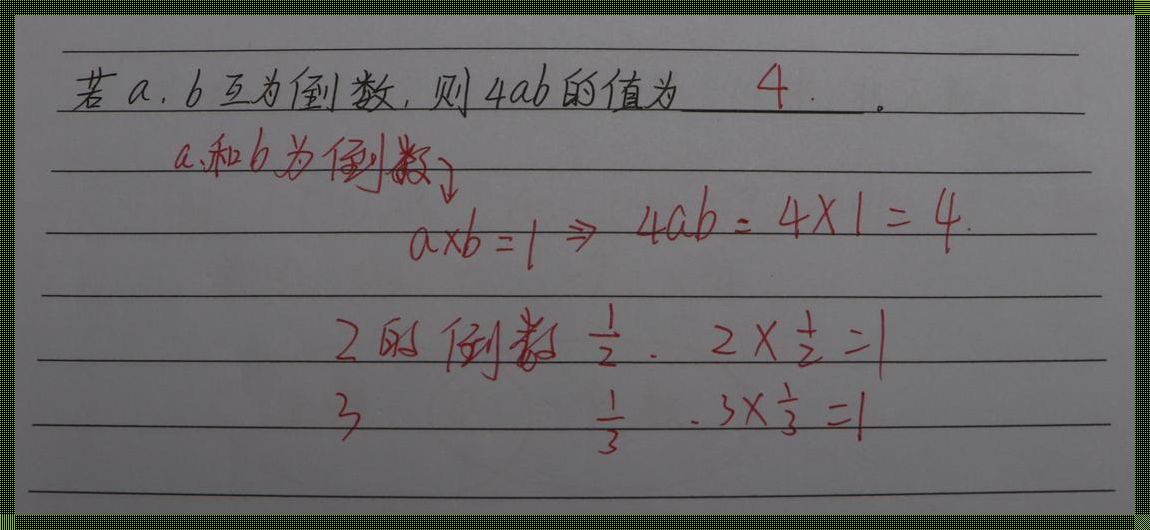 若 a、b 互为倒数，则 4ab 的值为 4. 。
a、和 b 为倒数
a×b=1 ⇒ 4ab = 4×1 = 4.
2 的倒数 1/2 . 2×1/2=1
3 1/3 . 3×1/3=1